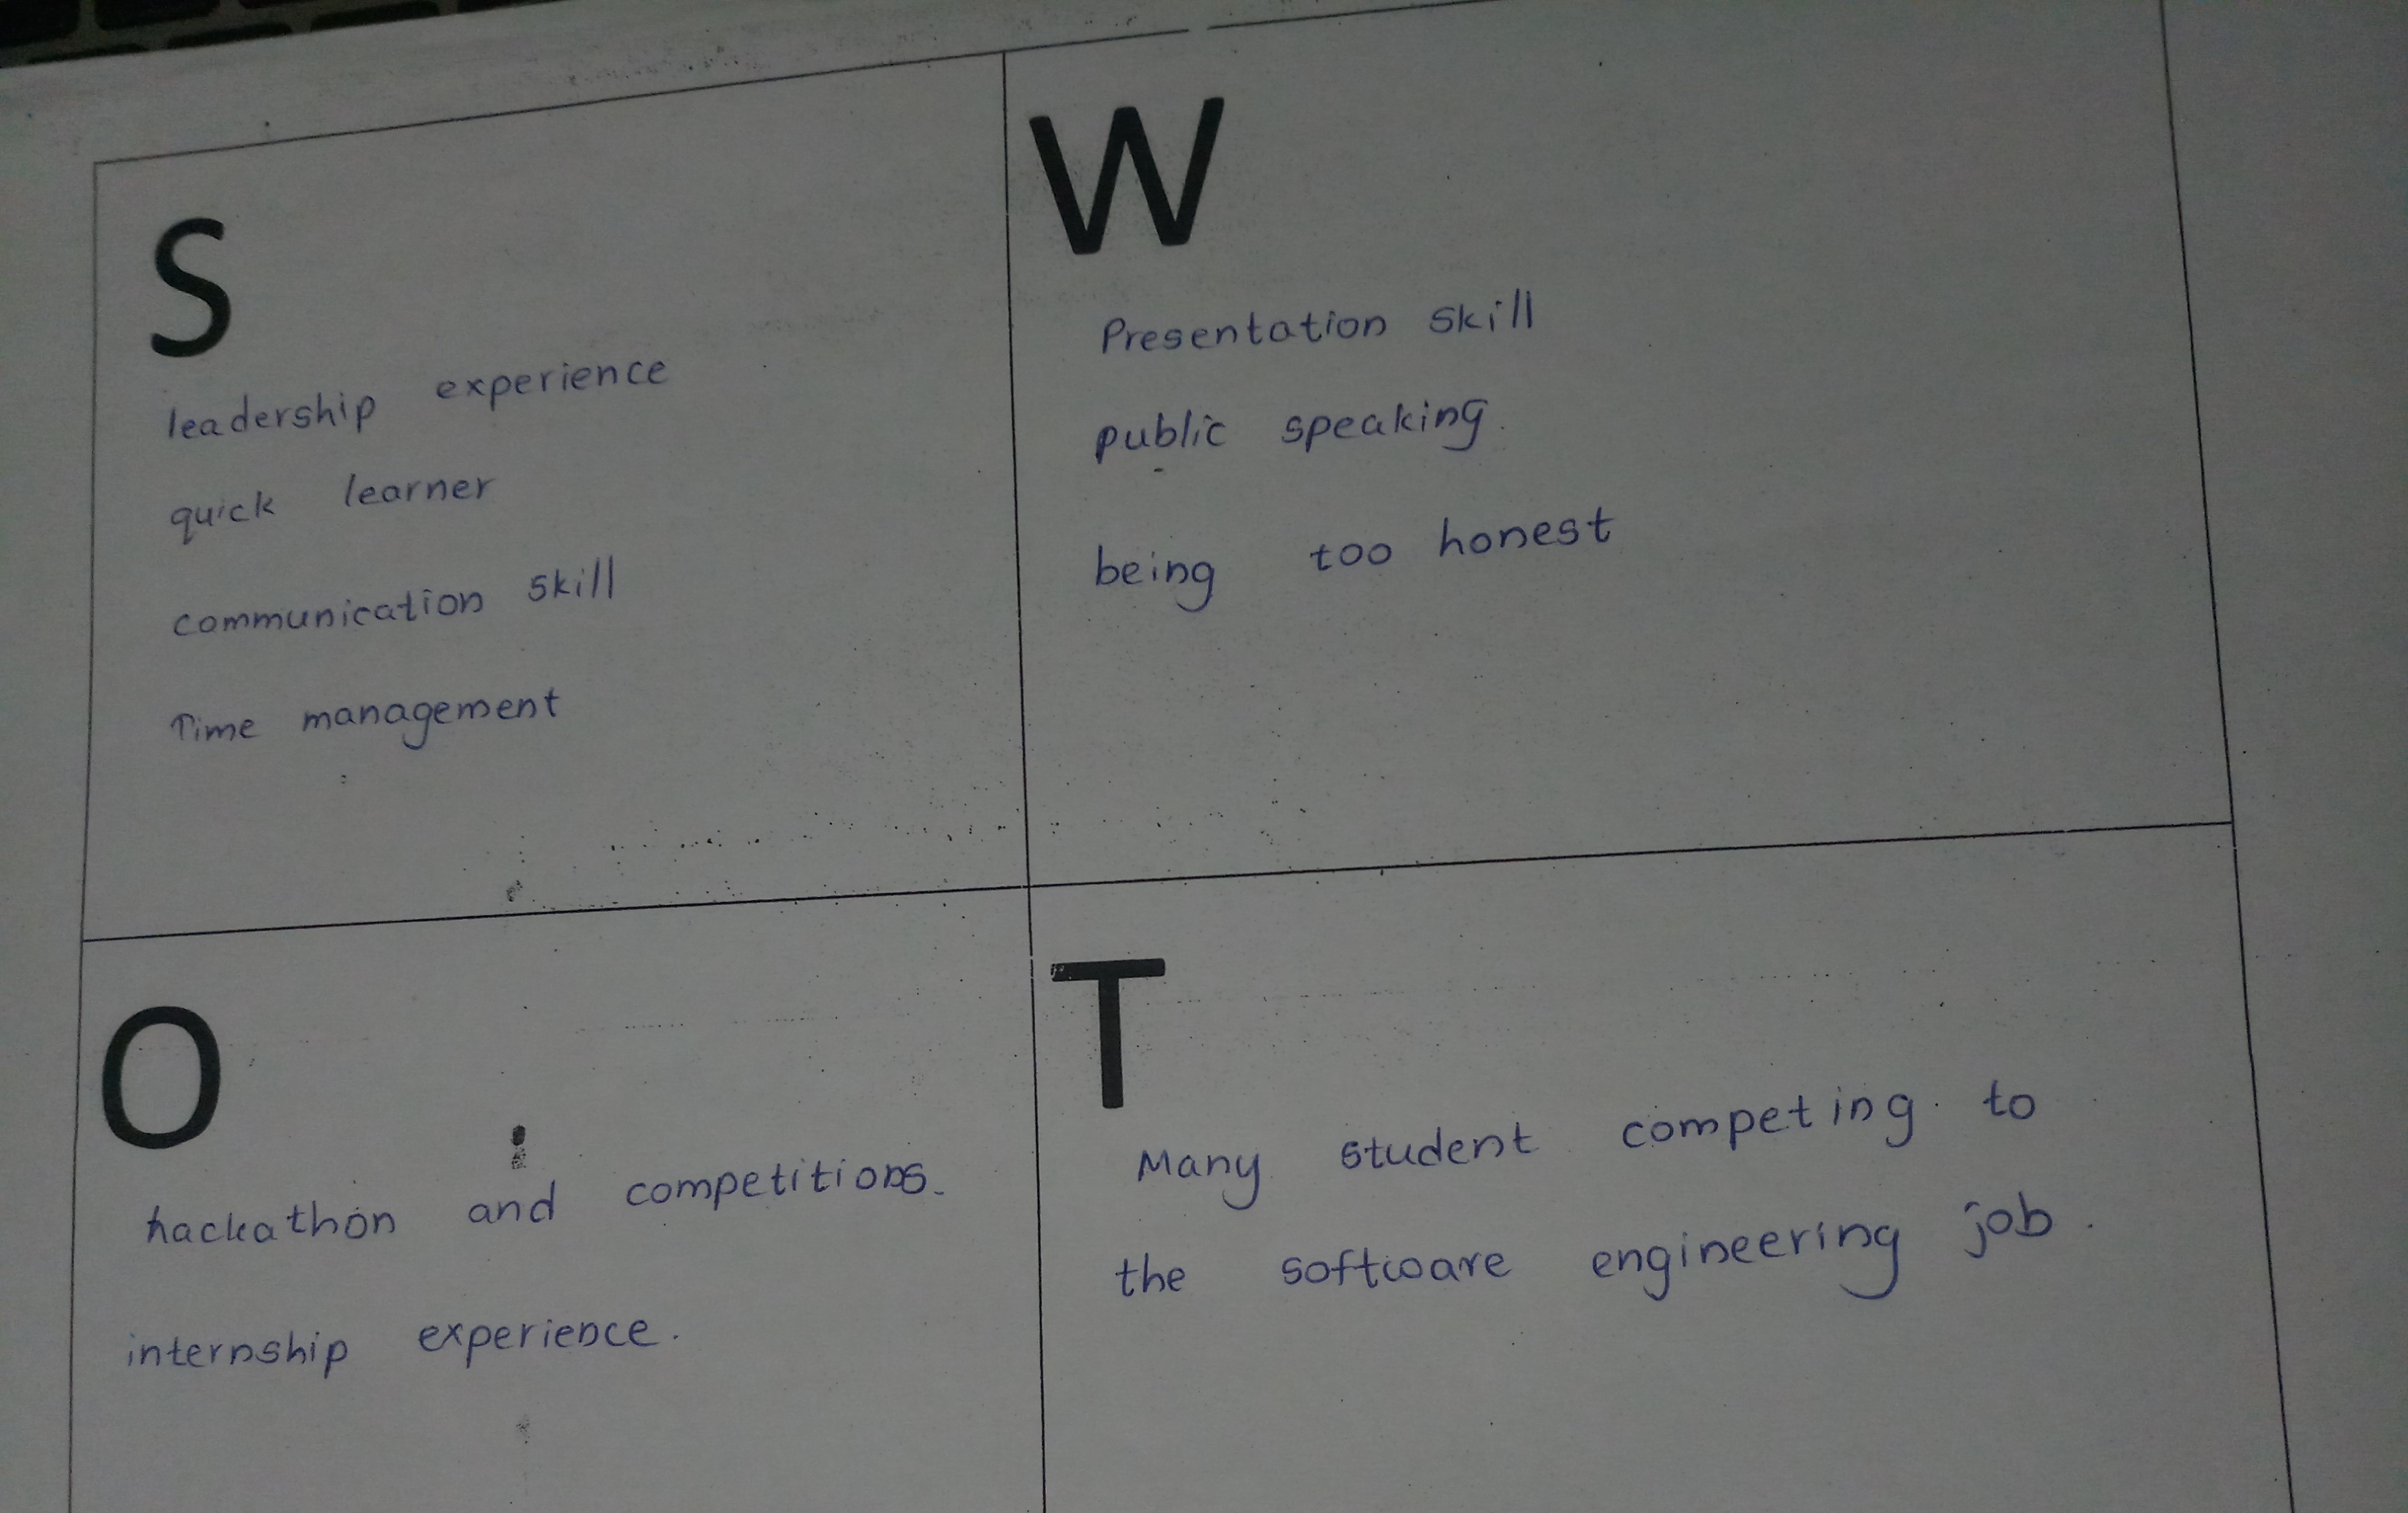 S
leadership experience
quick learner
communication skill
Time management
W
Presentation skill
public speaking.
being too honest
O
hackathon and competitions.
internship experience.
T
Many student competing to
the software engineering job.